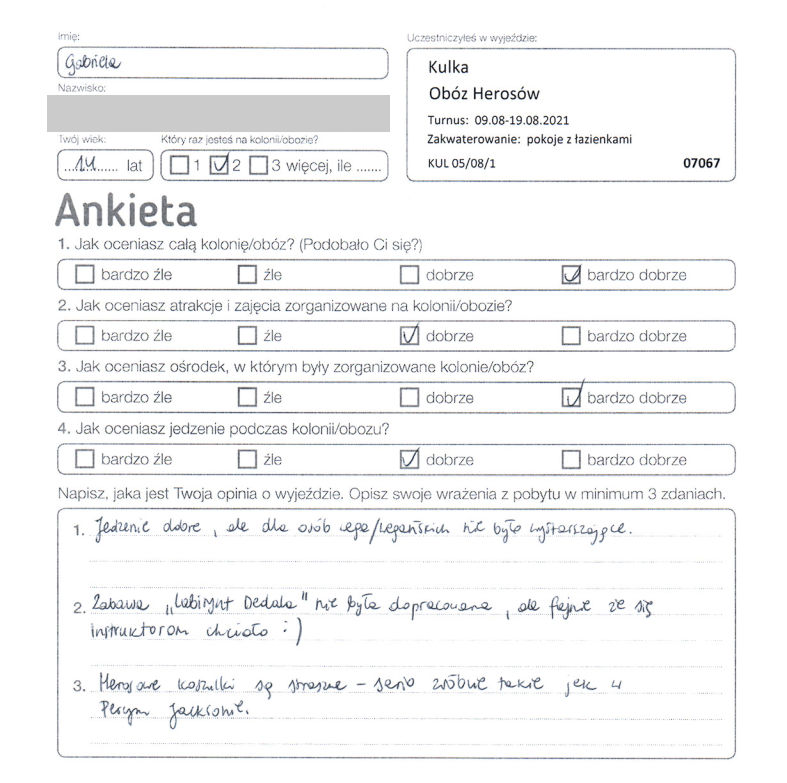 Imię:
Gabriela
Nazwisko:
Twój wiek:
...14...... lat
Który raz jesteś na kolonii/obozie?
1 2 3 więcej, ile .......
Uczestniczyłeś w wyjeździe:
Kulka
Obóz Herosów
Turnus: 09.08-19.08.2021
Zakwaterowanie: pokoje z łazienkami
KUL 05/08/1 07067
Ankieta
1. Jak oceniasz całą kolonię/obóz? (Podobało Ci się?)
bardzo źle źle dobrze bardzo dobrze
2. Jak oceniasz atrakcje i zajęcia zorganizowane na kolonii/obozie?
bardzo źle źle dobrze bardzo dobrze
3. Jak oceniasz ośrodek, w którym były zorganizowane kolonie/obóz?
bardzo źle źle dobrze bardzo dobrze
4. Jak oceniasz jedzenie podczas kolonii/obozu?
bardzo źle źle dobrze bardzo dobrze
Napisz, jaka jest Twoja opinia o wyjeździe. Opisz swoje wrażenia z pobytu w minimum 3 zdaniach.
1. Jedzenie dobre, ale dla osób wege/wegańskich nie było wystarszające.
2. Zabawa „Labirynt Dedala" nie była dopracowana, ale fajnie że się
instruktorom chciało :)
3. Herosowe koszulki są straszne - serio zróbcie takie jak w
Percym Jacksonie.